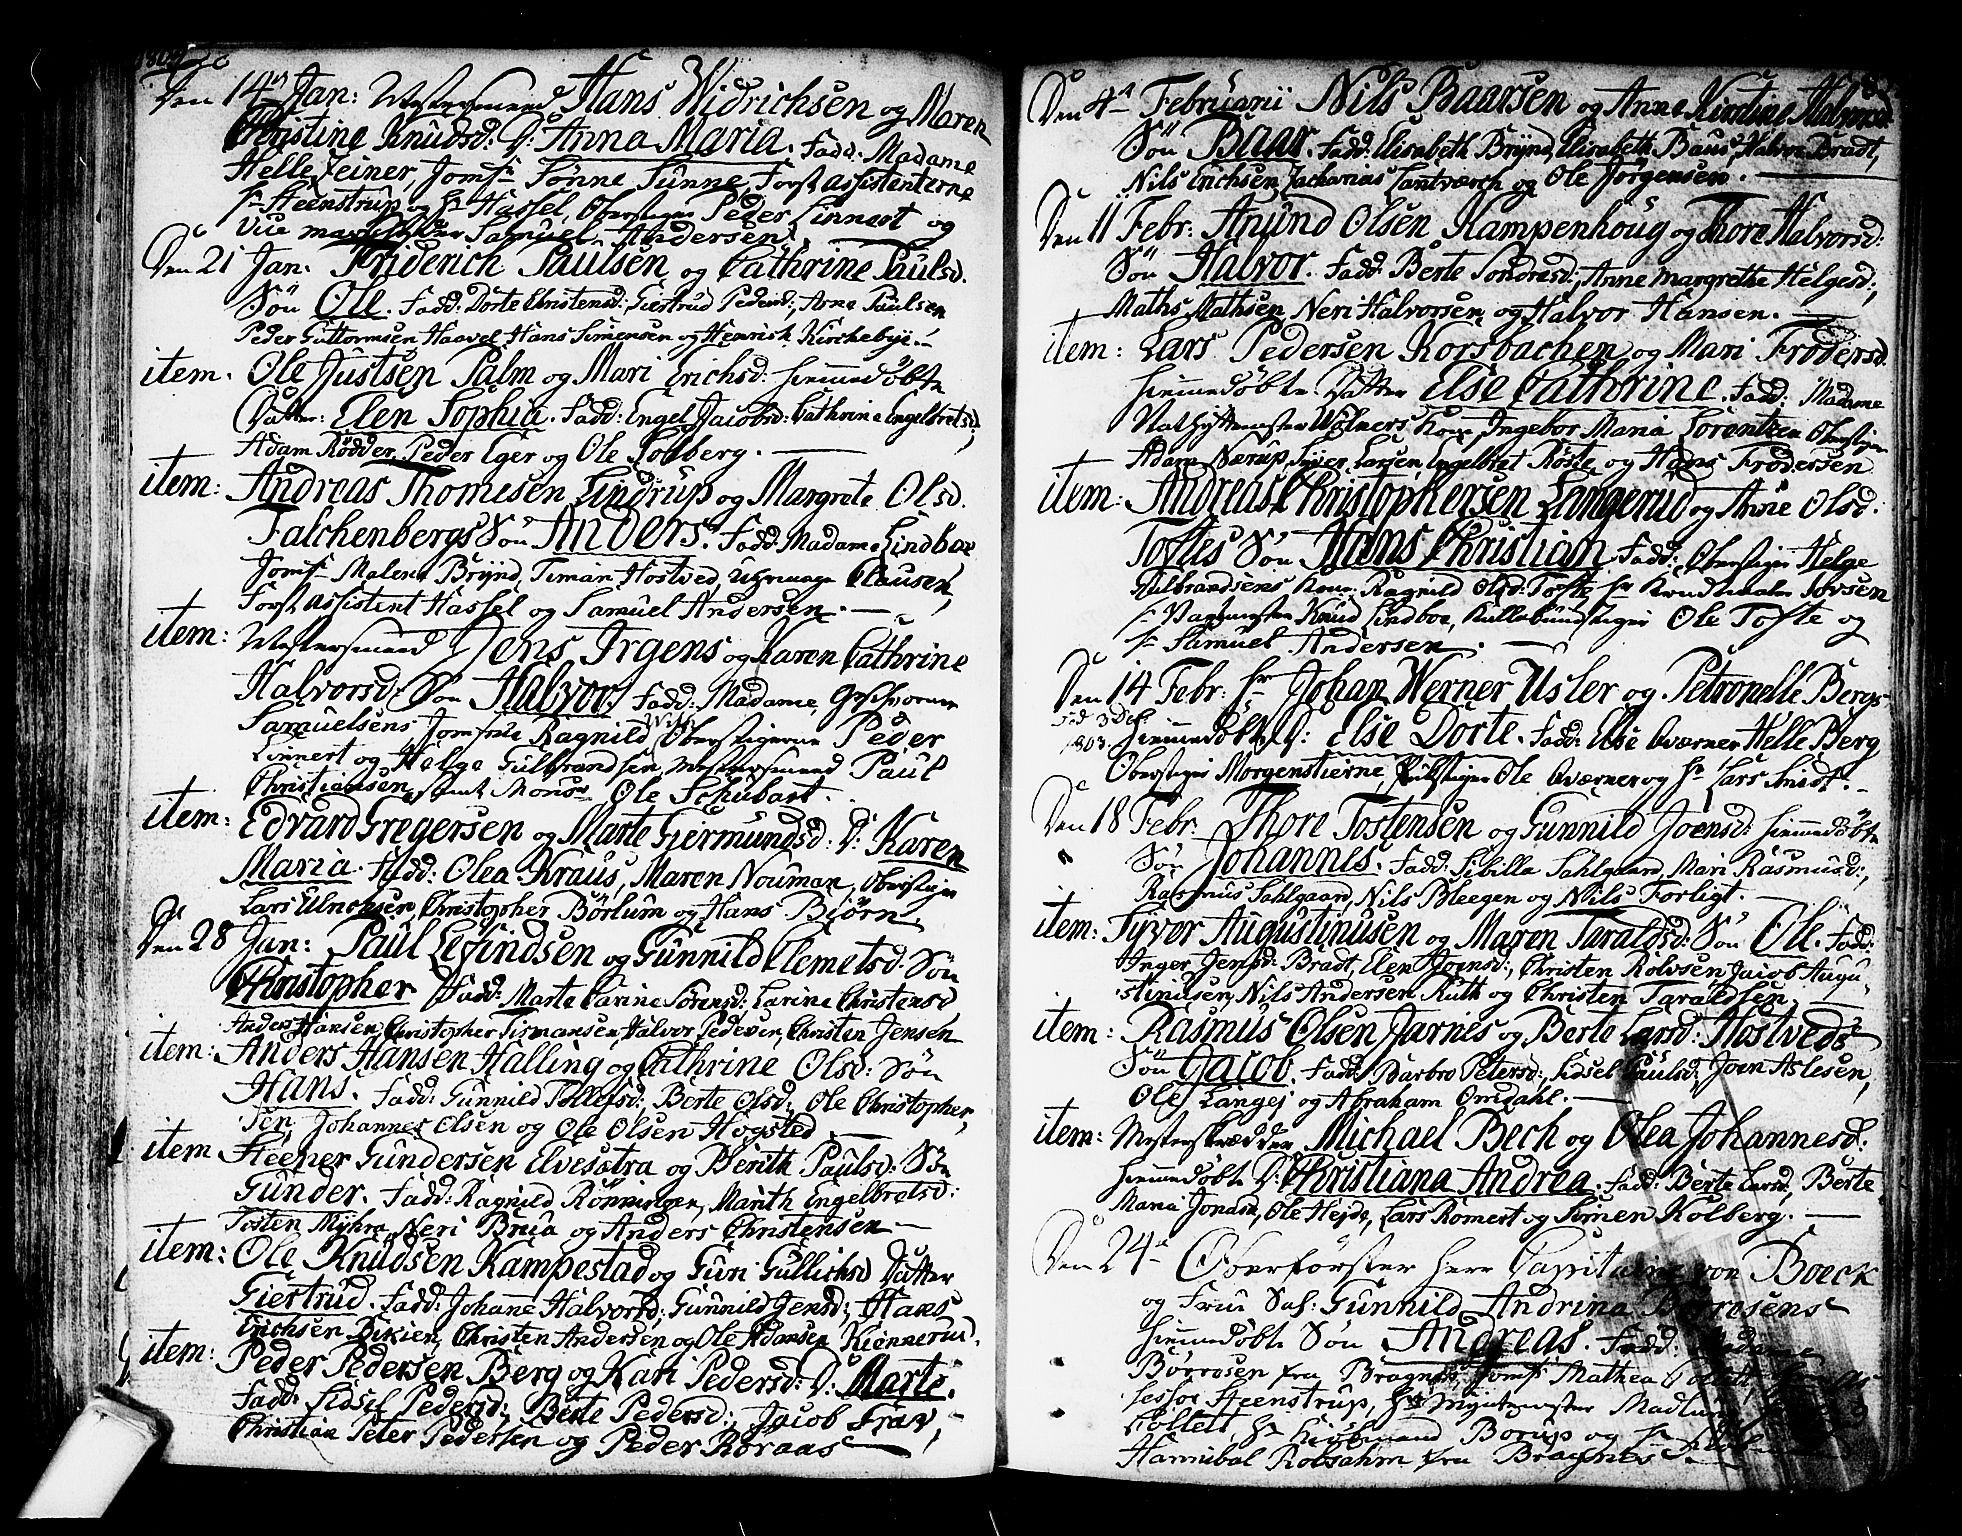 1804
Den 14de Jan: Mestersmeed Hans Widrichsen og Maren
Christine Knudsd. D: Anna Maria. Fadd: Madame
Helle Zeiner, Jomfr Sønne Sunne, Forst assistenterne
Hr Steenstrup og Hr Hassel, Oberstiger Peder Linnert og
Samuel Andersen.
Den 21 Jan. Friderich Paulsen og Cathrine Paulsd.
Søn Ole. Fadd: Dorte Christensd: Giertrud Pedersd:, Anne Paulsen
Peder Guttormsen Haavel, Hans Simensen og Henrich Kirchebye.
item. Ole Justsen Palm og Mari Erichsd: hiemmedøbte
Datter: Elen Sophia. Fadd: Engel Jacobsd: Cathrine Engelbretsd:,
Adam Rødder, Peder Eger og Ole Solberg.
item: Andreas Thomesen Lindrup og Margrete Olsd.
Falchenbergs Søn Anders. Fadd: Madame Lindboe
Jomfr Malene Brynd, Timan Hostved, Clausen,
Forst assistent Hassel og Samuel Andersen.
item: Mestersmeed Jens Irgens og Karen Cathrine
Halvorsd: Søn Halvor. Fadd: Madame, Geschworner
Samuelsens, Jomfrue Ragnild With Oberstigerne Peder
Linnert og Helge Gulbrandsen, Mestersmeed Paul
Christiansen, Ole Schubart.
item: Edvard Gregersen og Marte Giermundsd: D: Karen
Maria. Fadd: Olea Kraus, Maren Nouman, Oberstiger
Lars Ulrichsen, Christopher Børlum og Hans Biørn.
Den 28 Jan: Paul Lefindsen og Gunnild Clemetsd: Søn
Christopher. Fadd: Marte Carine Sørensd: Larine Christensd
Anders Hansen, Christopher Tismansen, Halvor Pedersen, Christen Jensen
item: Anders Hansen Halling og Cathrine Olsd: Søn
Hans. Fadd: Gunnild Tollefsd: Berte Olsd:, Ole Christopher,
sen, Johannes Olsen og Ole Olsen Hogsted
item Steener Gundersen Elvesætra og Berith Paulsd: Søn
Gunder. Fadd: Ragnild Rønningen, Marith Engelbretsd:
Tosten Myhra, Neri Brua og Anders Christensen
item: Ole Knudsen Kampestad og Guri Gullichsd Datter
Giertrud. Fadd: Johane Halvorsd:, Gunnild Jensd:, Hans
Erichsen Bikien, Christen Andersen og Ole Adansen Kiennerud.
item: Peder Pedersen Berg og Kari Pedersd: D: Marte.
Fadd: Sidsel Pedersd: Berte Pedersd:, Jacob Frav,
Christian Peter Pedersen og Peder Roraas
Den 4de Februarii Nils Baarsen og Anne Kirstine Halvorsd.
Søn Baar. Fadd: Elisabeth Brynd, Elisabeth Baus, Halvor Bradt,
Nils Erichsen, Zacharias Santværch og Ole Jørgensen.
Den 11 Febr: Anund Olsen Kampenhoug og Thore Halvorsd:
Søn Halvor. Fadd: Berte Tondresd:, Anne Margrethe Helgesd:,
Maths Mathsen, Neri Halvorsen, og Halvor Hansen.
item: Lars Pedersen Korsbachen og Mari Frodersd.
hiemmedøbte Datter Else Cathrine. Fadd: Madame
Wølners Kone, Ingebor Maria Lorentzen Oberstiger
Adam Nærup, Syver Larsen, Engelbret Røste og Hans Frodersen
item: Andreas Christophersen Langerud og Anne Olsd.
Toftes Søn Hans Christian. Fadd: Oberstiger Helge
Gulbrandsens Kone, Ragnild Olsd: Tofte, Hr Iversen
Hr Knud Lindboe, Ole Tofte og
Hr Samuel Andersen.
Den 14 Febr: Hr Johan Werner Usler og Petronelle Bergs
Fød 3 Dec: 1803. hiemmedøbte D: Else Dorte. Fadd: Else Qværner, Helle Berg
Oberstiger Morgenstierne, Ole Qværner og Hr Lars Smidt.
Den 18 Febr. Thore Tostensen og Gunnild Joensd: hiemmedøbte
Søn Johannes. Fadd: Sibilla Sahlgaard, Mari Rasmusd:,
Rasmus Sahlgaard, Nils Bleegen og Nils Forligt.
item: Syver Augustinusen og Maren Taraldsd: Søn Ole. Fadd:
Inger Jensd: Bradt, Elen Joensd:, Christen Rolvsen, Jacob Augu,
stinusen, Nils Andersen Ruth og Christen Taraldsen.
item: Rasmus Olsen Jarnes og Berte Larsd: Hostveds
Søn Jacob. Fadd: Barbro Petersd:, Sidsel Paulsd:, Joen Aslesen,
Ole Langej og Abraham Omdahl.
item: Mesterskrædder Michael Bech og Olea Johannesd:
hiemmedøbte D: Christiana Andrea. Fadd: Berte Larsd:, Berte
Maria Jonasd:, Ole Hejde, Lars Romert og Simen Kolberg.
Den 24de Oberførster Herr Capitaine von Boeck
og Frue Sal: Gunnild Andrina Børresens
hiemmedøbte Søn Andreas. Fadd: Madame
Børresen fra Bragnes, Jomfr Mathea Collett
Steenstrup, Hr Myntmester Madlung
Collett, Hr Kiøbmand Borup og Hr
Hannibal Kolsahm fra Bragnes